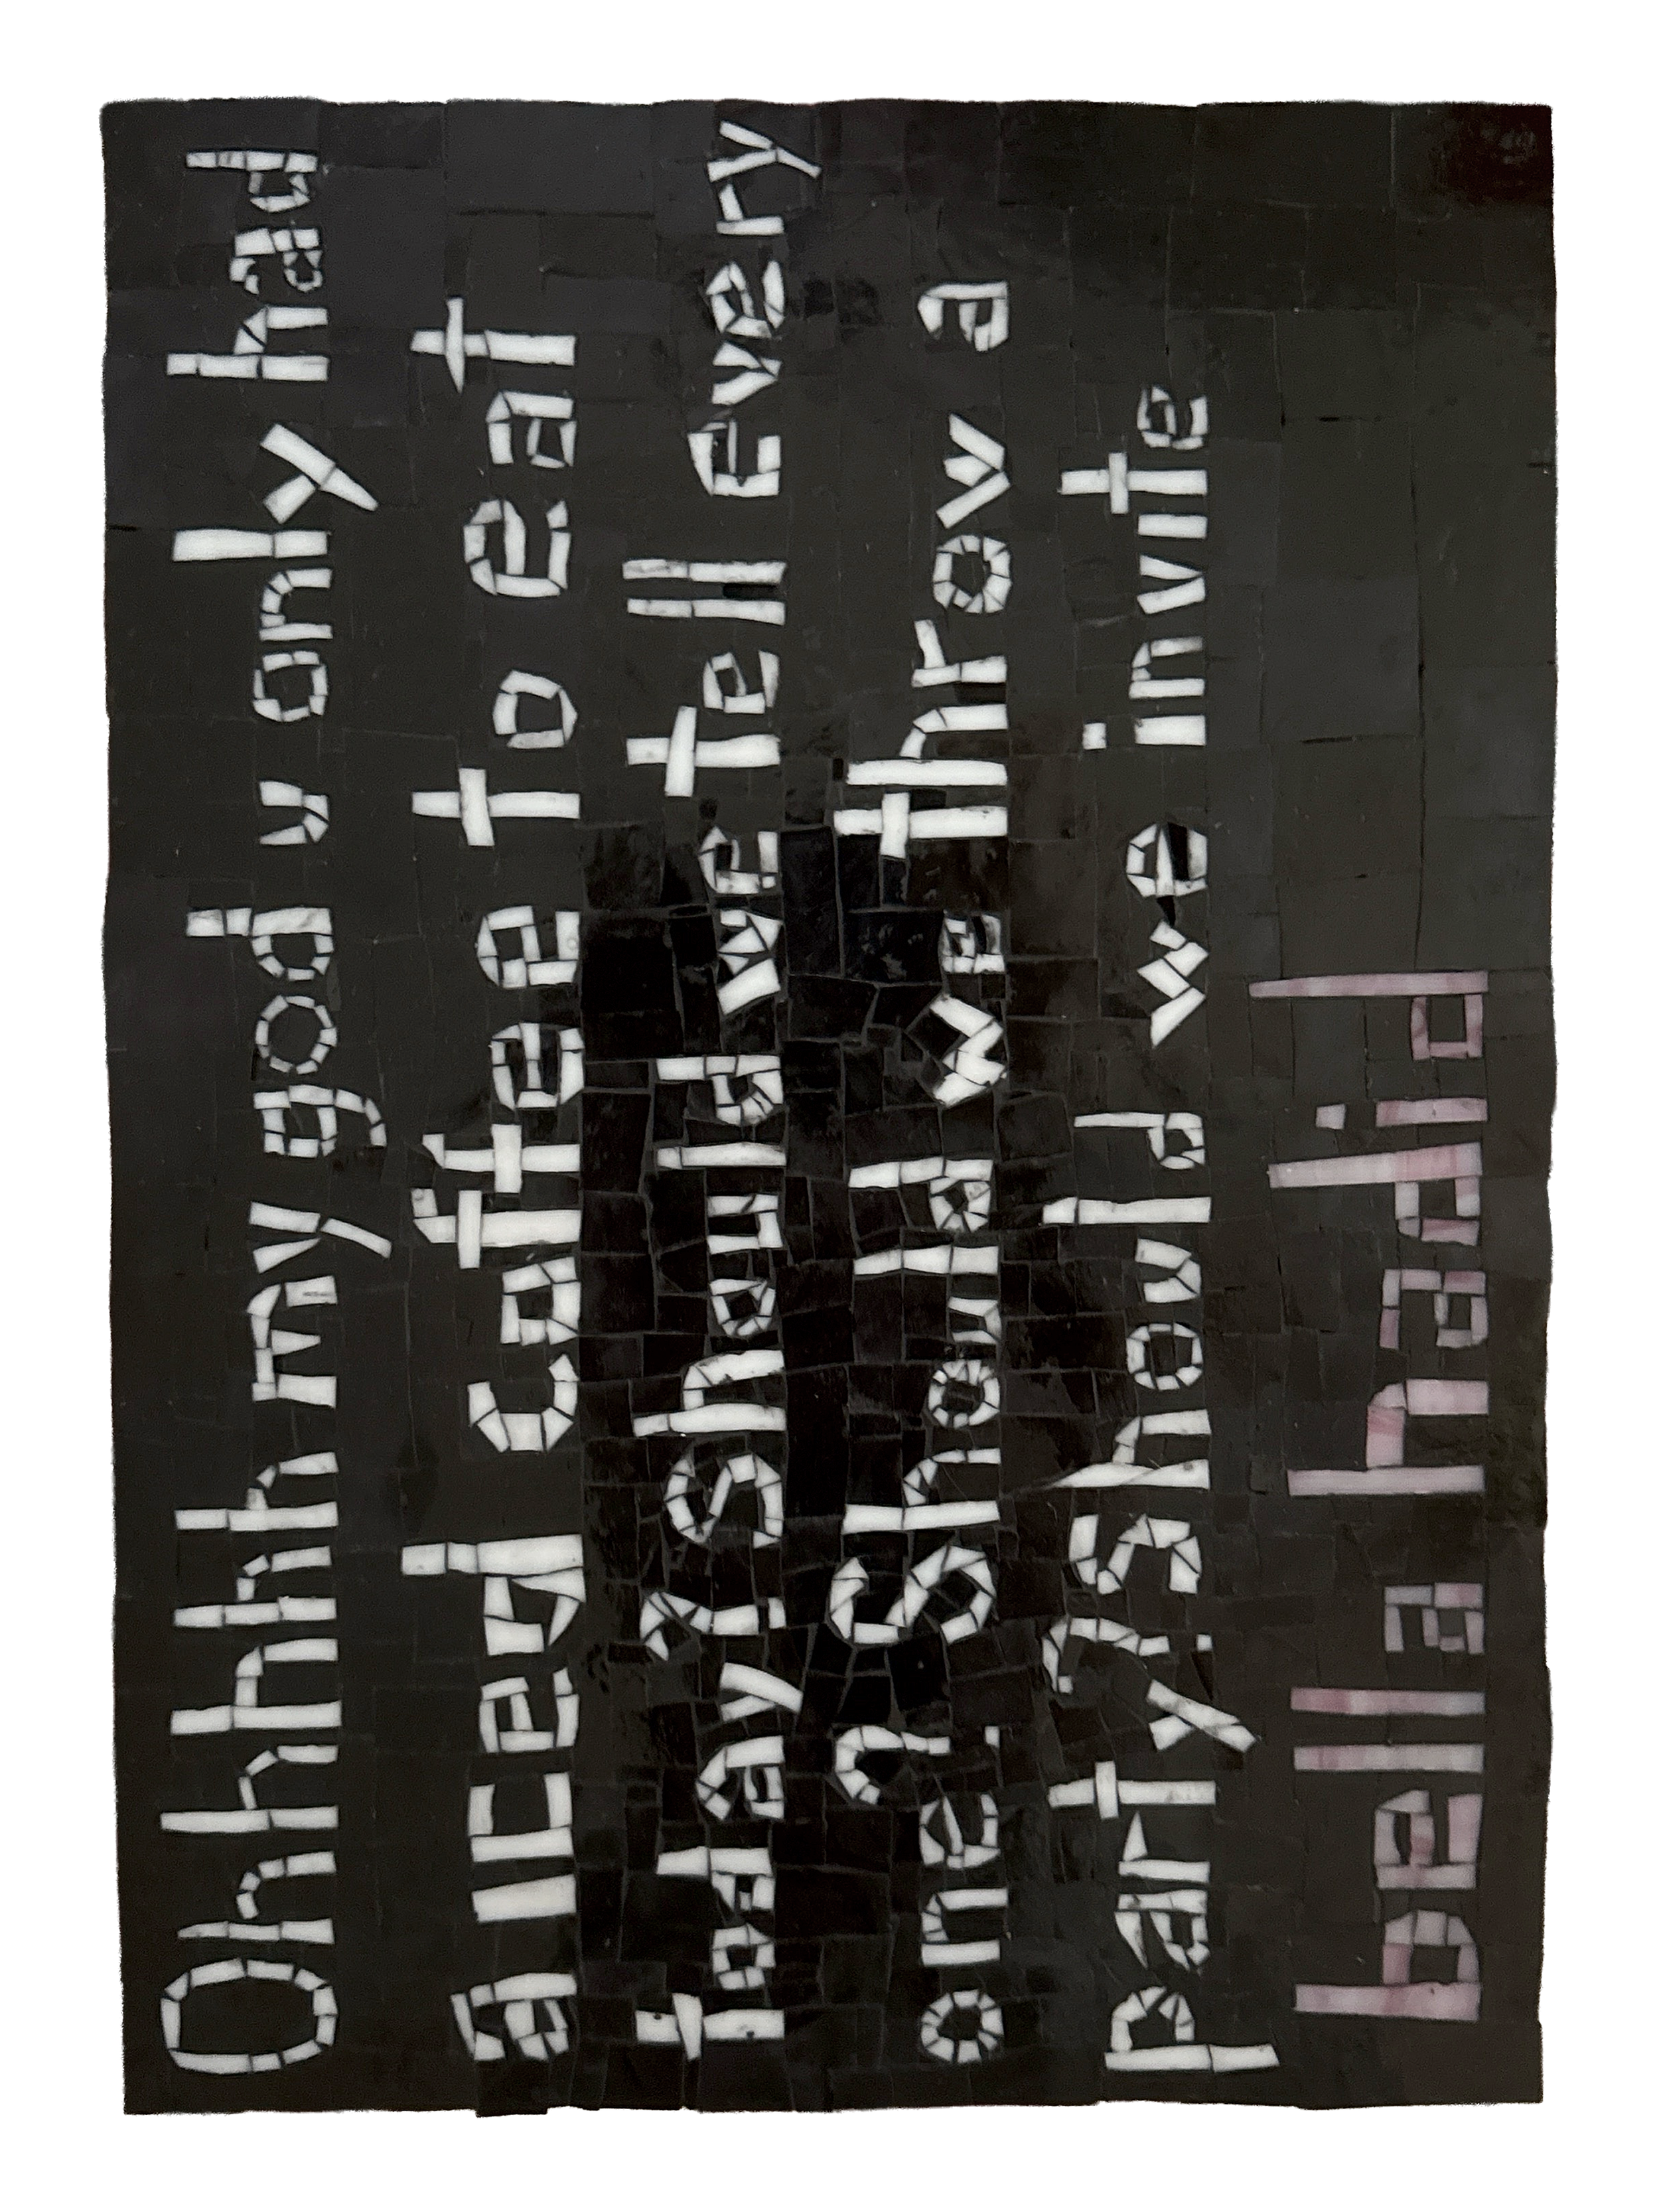 Ohhhhh my god u only had
a iced coffee to eat
today? Should we tell every
one? Should we throw a
party? Should we invite
bella hadid